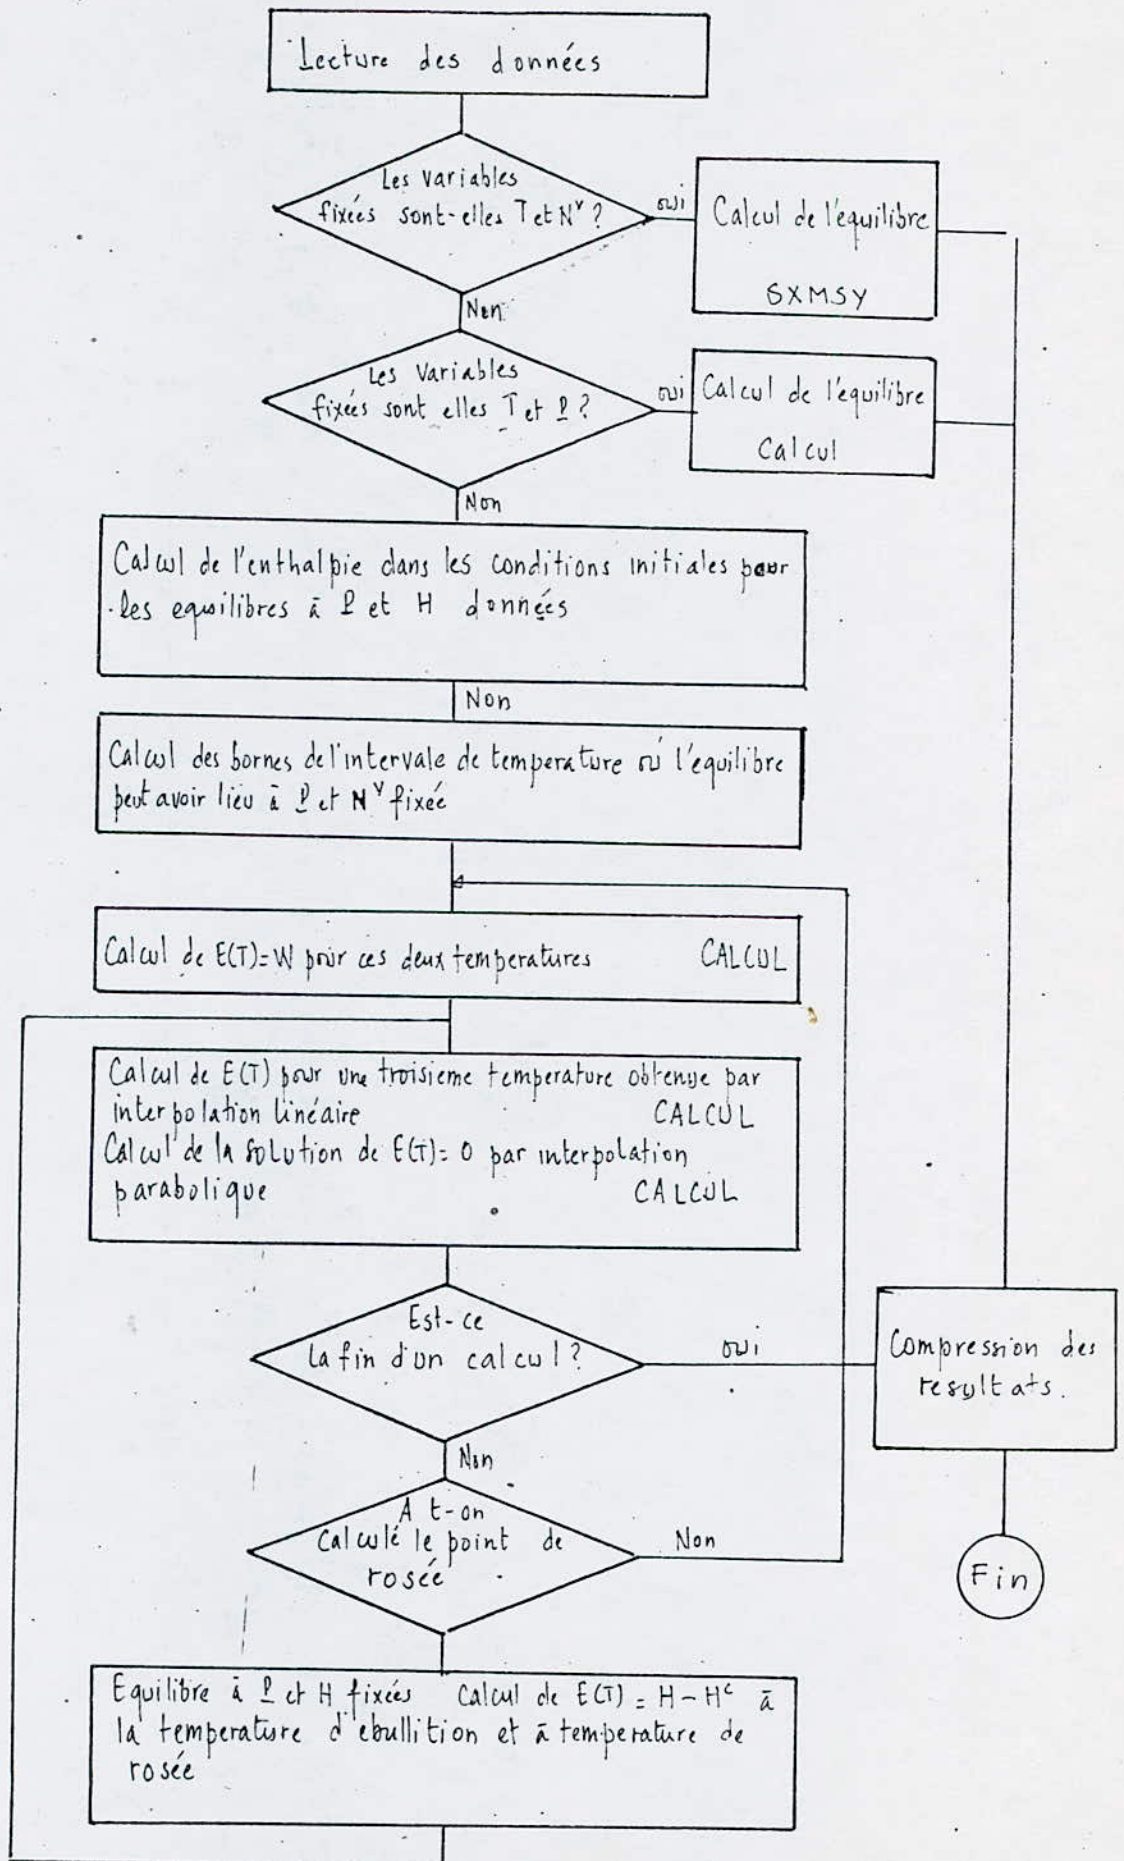 Lecture des données
Les variables
fixées sont-elles T et Nᵛ ?
oui
Calcul de l'équilibre
SXMSY
Non
Les variables
fixées sont elles T et P ?
oui
Calcul de l'equilibre
Calcul
Non
Calcul de l'enthalpie dans les conditions initiales pour
les equilibres à P et H données
Non
Calcul des bornes de l'intervale de temperature où l'équilibre
peut avoir lieu à P et Nᵛ fixée
Calcul de E(T)=W pour ces deux temperatures CALCUL
Calcul de E(T) pour une troisieme temperature obtenue par
interpolation linéaire CALCUL
Calcul de la solution de E(T)= 0 par interpolation
parabolique CALCUL
Est-ce
la fin d'un calcul ?
oui
Compression des
resultats.
Non
A t-on
Calculé le point de
rosée
Non
Fin
Equilibre à P et H fixées Calcul de E(T) = H - Hᶜ à
la temperature d'ebullition et à temperature de
rosée